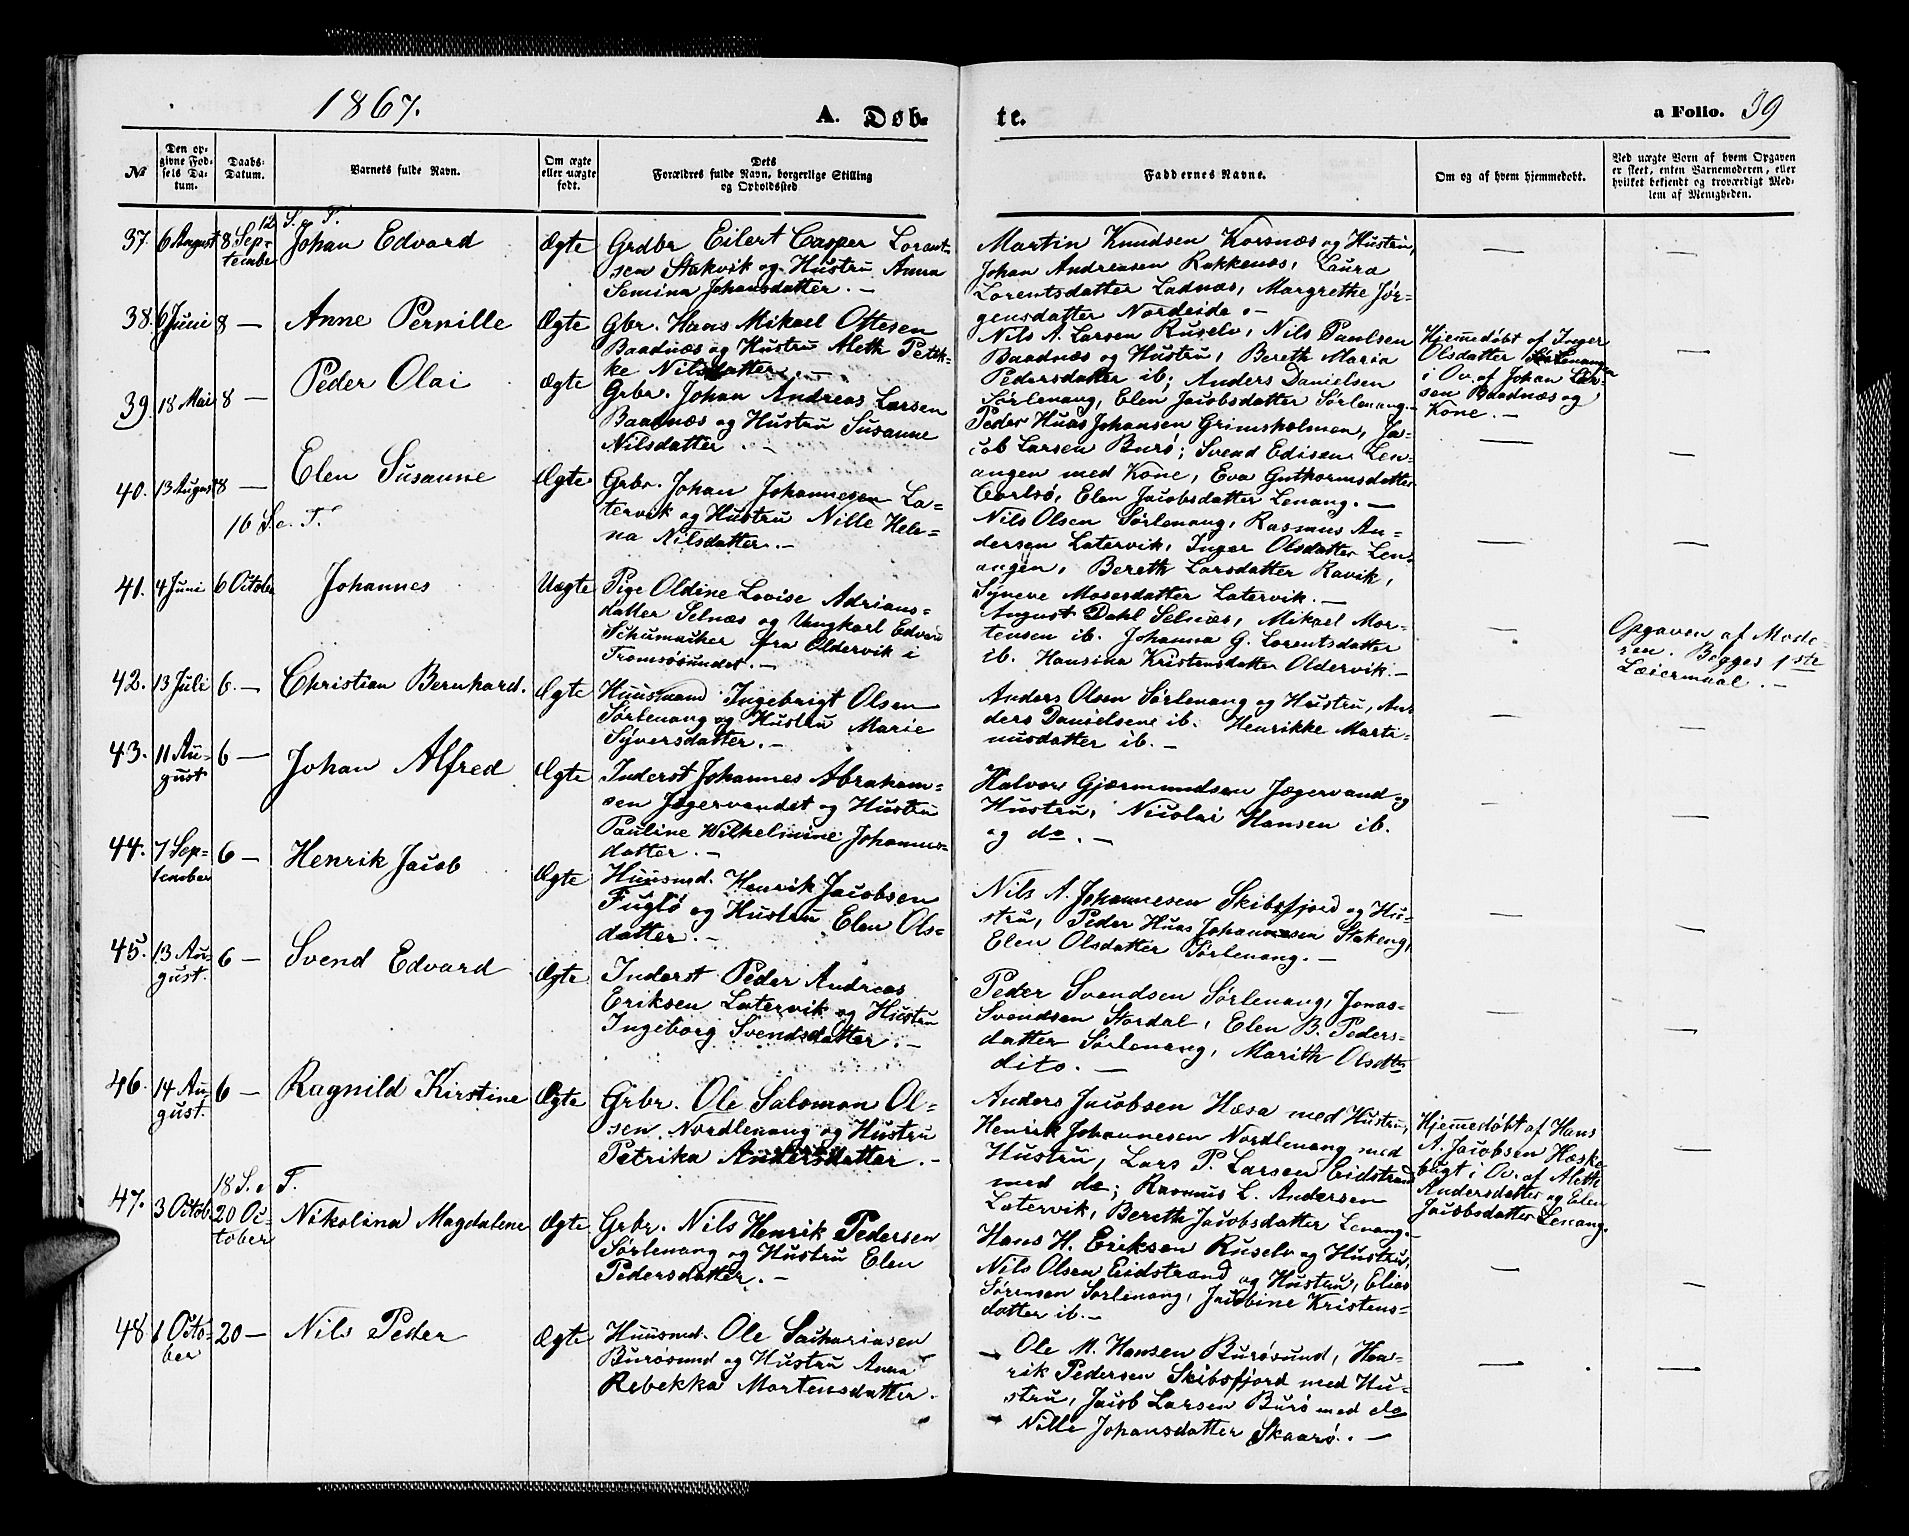 1867.
A. Døb-
te.
a Folio. 39
No
Den op-
givne Fød-
sels Da-
tum.
Daabs-
Datum.
Barnets fulde Navn.
Om ægte
eller uægte
født.
Dets
Forældres fulde Navn, borgerlige Stilling
og Opholdssted
Faddernes Navne.
Om og af hvem hjemmedøbt.
Ved uægte Børn af hvem Opgaven
er skeet, enten Barnemoderen, eller
hvilket bekjendt og troværdigt Med-
lem af Menigheden.
12 S. e. T.
37. 6 August 8 Sep-
tember
Johan Edvard
Ægte
Grdbr Eilert Casper Lorent-
sen Stakvik og Hustru Anna
Semina Johansdatter. -
Martin Knudsen Korsnæs og Hustru,
Johan Andreasen Rakkenæs, Laura
Lorentsdatter Ladnæs, Margrethe Jør-
gensdatter Nordeide. -
—
—
38. 6 Juni 8 —
Anne Pernille
Ægte
Gbr. Hans Mikael Ottesen
Baadnæs og Hustru Aleth Petrik-
ke Nilsdatter. -
Nils A. Larsen Ruselv, Nils Paulsen
Baadnæs og Hustru, Bereth Maria
Pedersdatter ib; Anders Danielsen
Sørlenang, Elen Jacobsdatter Sørlenang. -
Hjemmedøbt af Inger
Olsdatter Sørlenangen
i Ov. af Johan Lar-
sen Baadnæs og
Kone. -
—
39. 18 Mai 8 —
Peder Olai
Ægte
Grbr. Johan Andreas Larsen
Baadnæs og Hustru Susanne
Nilsdatter. -
Peder Huas Johansen Grimsholmen, Ja-
cob Larsen Burø; Svend Edisen Len-
angen med Kone, Eva Guthormsdatter
Carlsø, Elen Jacobsdatter Lenang. -
—
—
40. 13 August 8 —
Elen Susanne
Ægte
Grbr. Johan Johannesen La-
tervik og Hustru Nille Hele-
na Nilsdatter. -
Nils Olsen Sørlenang, Rasmus An-
dersen Latervik, Inger Olsdatter Len-
angen, Bereth Larsdatter Ravik,
Syneve Mosesdatter Latervik. -
—
—
16 S. e. T.
41. 4 Juni 6 October
Johannes
Uægte
Pige Oldine Lovise Adrians-
datter Selnæs og Ungkarl Edvard
Schumacher fra Oldervik i
Tromsøsundet. -
August Dahl Selnæs, Mikael Mor-
tensen ib. Johanna G. Lorentsdatter
ib. Hansina Kristensdatter Oldervik. -
—
Opgaven af Mode-
ren. Begges 1ste
Leiermaal. -
42. 13 Juli 6. —
Christian Bernhard.
Ægte
Huusmand Ingebrigt Olsen
Sørlenang og Hustru Marie
Syversdatter. -
Anders Olsen Sørlenang og Hustru, An-
ders Danielsen ib. Henrikke Marti-
nusdatter ib. -
—
—
43. 11 Au-
gust 6 —
Johan Alfred
Ægte
Inderst Johannes Abraham-
sen Jægervandet og Hustru
Pauline Wilhelmine Johannes-
datter. -
Halvor Gjærmundsen Jægervand og
Hustru, Nicolai Hansen ib.
og do. -
—
—
44. 7 Sep-
tember 6 —
Henrik Jacob
Ægte
Huusmd. Henrik Jacobsen
Fuglø og Hustru Elen Ols-
datter. -
Nils A. Johannesen Skibsfjord og Hu-
stru, Peder Huas Johannesen Stakeng,
Elen Olsdatter Sørlenang. -
—
—
45. 13 Au-
gust. 6 —
Svend Edvard
Ægte
Inderst Peder Andreas
Eriksen Latervik og Hustru
Ingeborg Svendsdatter. -
Peder Svendsen Sørlenang, Jonas
Svendsen Stordal, Elen B. Peders-
datter Sørlenang, Marith Olsdtr
dito. -
—
—
46. 14 Au-
gust. 6 —
Ragnild Kirstine
Ægte
Grbr. Ole Salomon Ol-
sen Nordlenang og Hustru
Petrika Andersdatter. -
Anders Jacobsen Hæsa med Hustru,
Henrik Johannesen Nordlenang med
Hustru, Lars P. Larsen Eidstrand
med do; Rasmus L. Andersen
Latervik, Bereth Jacobsdatter Lenang. -
Hjemmedøbt af Hans
A. Jacobsen Hæske-
bugt i Ov. af Aleth
Andersdatter og Elen
Jacobsdatter Lenang.
—
18 S. e. T.
47. 3 Octob. 20 Oc-
tober
Nikolina Magdalene
Ægte
Grbr. Nils Henrik Pedersen
Sørlenang og Hustru Elen
Pedersdatter. -
Hans H. Eriksen Ruselv og Hustru,
Nils Olsen Eidstrand og Hustru, Elias
Sørensen Sørlenang, Jacobine Kristens-
datter ib. -
—
—
48. 1 Octo-
ber 20 —
Nils Peder
Ægte
Huusmd. Ole Sachariasen
Burøsund og Hustru Anna
Rebekka Mortensdatter.
Ole M. Hansen Burøsund, Hen-
rik Pedersen Skibsfjord med Hu-
stru, Jacob Larsen Burø med do
Nille Johansdatter Skaarø. -
—
—